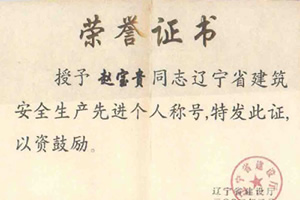 荣誉证书
授予赵宝贵同志辽宁省建筑
安全生产先进个人称号,特发此证,
以资鼓励。
辽宁省建设厅